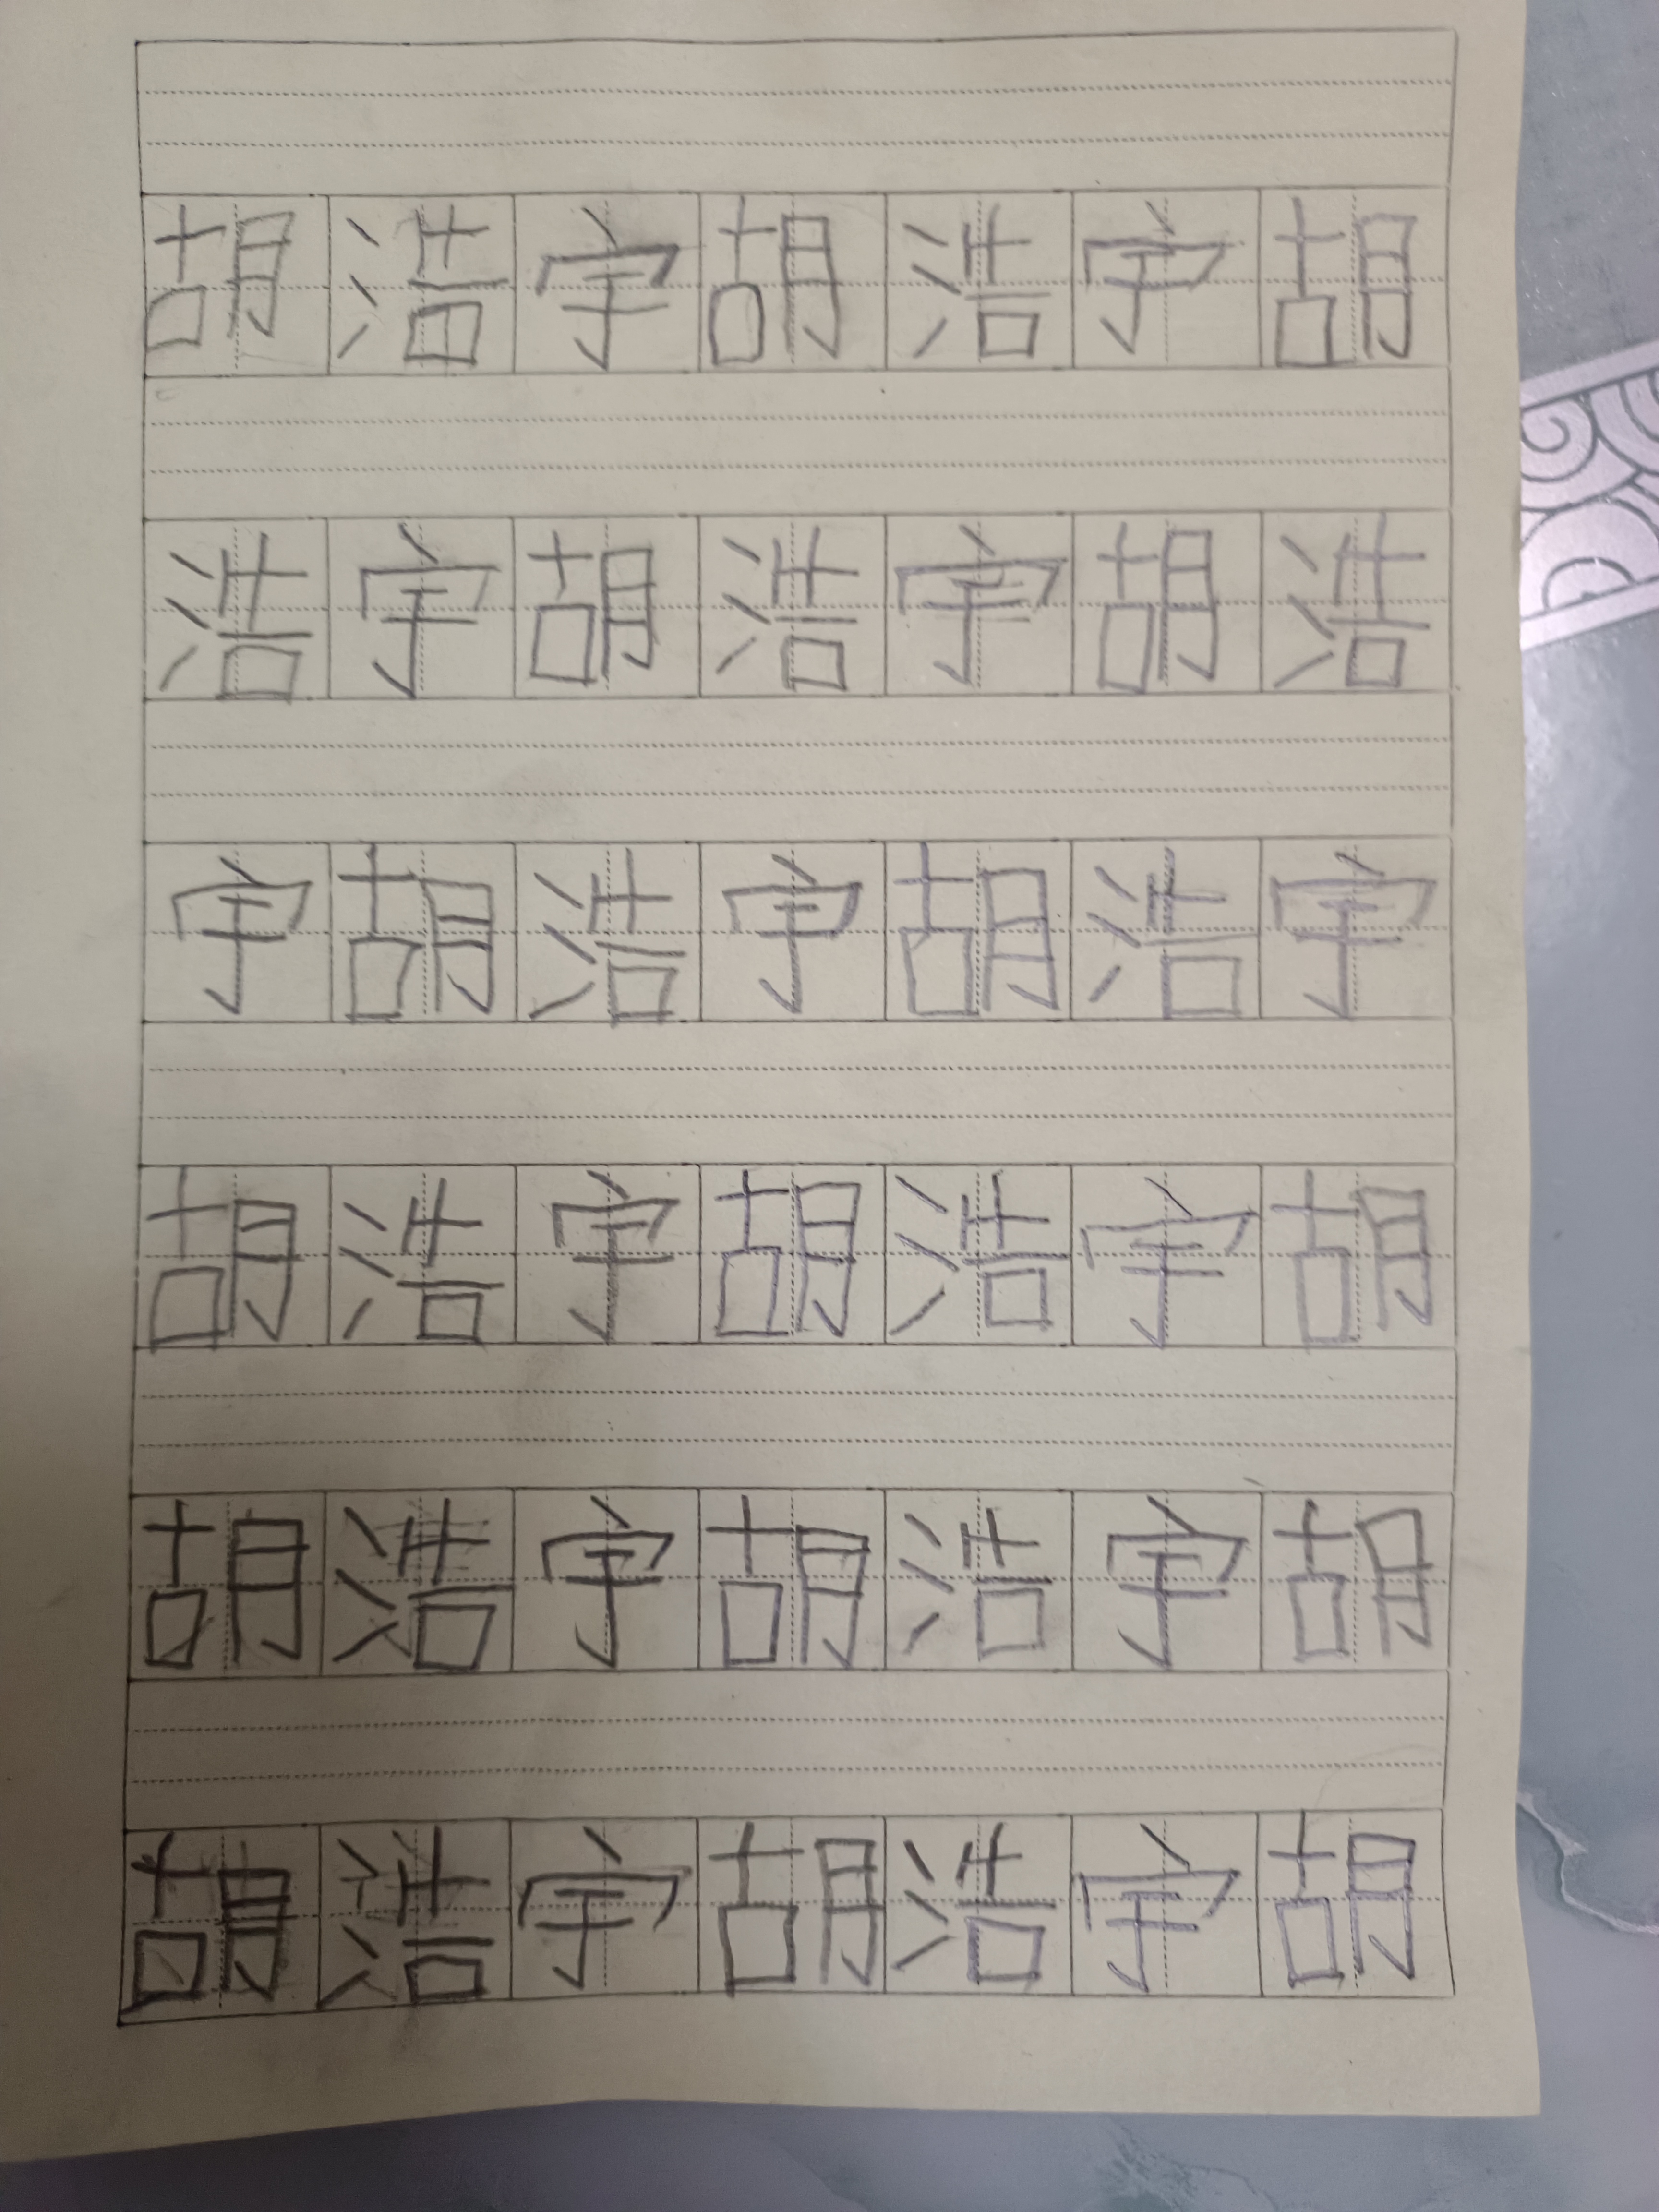 胡浩宇胡浩宇胡
浩宇胡浩宇胡浩
宇胡浩宇胡浩宇
胡浩宇胡浩宇胡
胡浩宇胡浩宇胡
胡浩宇胡浩宇胡